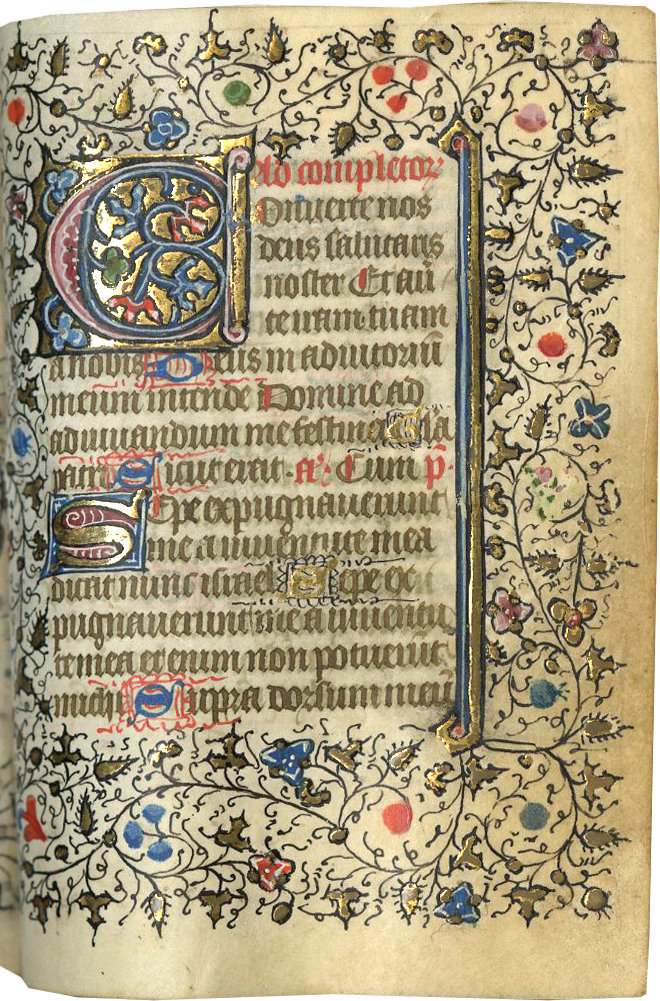 Ad completor᷑
Conuerte nos
deus salutaris
noster Et au
te iram tuam
a nobis Deus in adiutoriū
meum intende Domine ad
adiuuandum me festina Gl'a
patri Sicut erat. a͛. Cum p̄.
Sepe expugnauerunt
me a iuuentute mea
dicat nunc israel Sepe ex
pugnauerunt me a iuuentu
te mea etenim non potuerūt
michi Supra dorsum meū